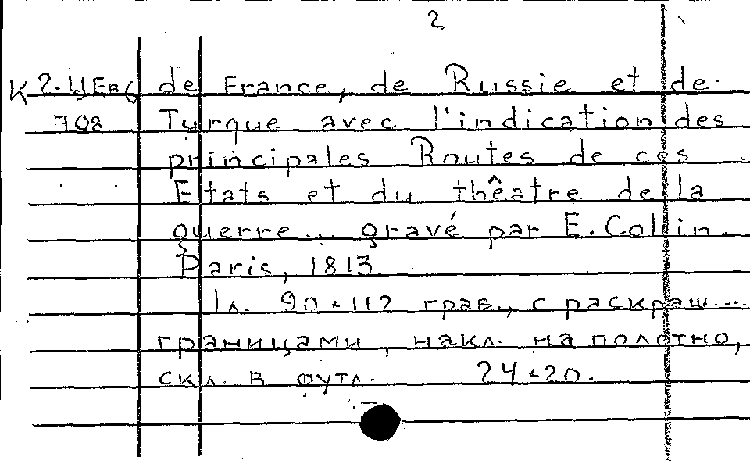 2
К 2-ЦЕв6 de France, de Russie et de
708 Turque avec l'indication des
principales Routes de ces
Etats et du théâtre de la
guerre... gravé par E. Collin.
Paris, 1813.
1л. 90×112 грав., с раскраш...
границами, накл. на полотно,
скл. в футл. 24×20.